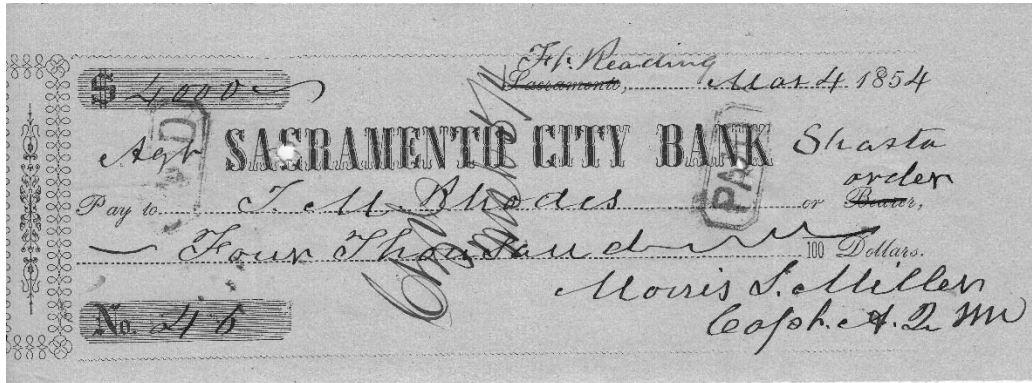 Ft. Reading
Sacramento, Mar 4 1854
$ 4000
Agt SACRAMENTO CITY BANK Shasta
order
Pay to T. M. Rhodes or Bearer,
Four Thousand 100 Dollars.
Morris S. Miller
No. 46
Capt. A. Q. M
PAID
PAID